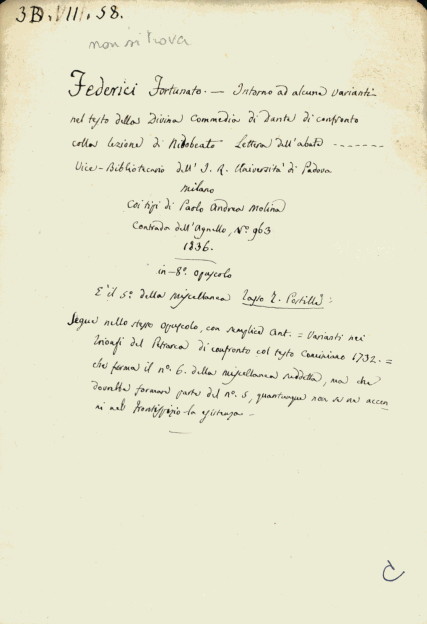 3D.VIII.58.
non si trova
Federici Fortunato. — Intorno ad alcune varianti
nel testo della Divina Commedia di Dante di confronto
colla lezione di Nidobeato Lettera dell'abate -------
Vice-Bibliotecario dell'I. R. Università di Padova
Milano
Coi tipi di Paolo Andrea Molina
Contrada dell'Agnello, N.º 963
1836.
in-8º. opuscolo
E' il 5º. della miscellanea Tasso T. Postille:
Segue nello stesso opuscolo, con semplice ant. = Varianti nei
Trionfi del Petrarca di confronto col testo Cominiano 1732. =
che forma il nº. 6. della miscellanea suddetta, ma che
dovrebbe formare parte del nº. 5, quantunque non se ne accen
ni nel frontispizio la esistenza —
C